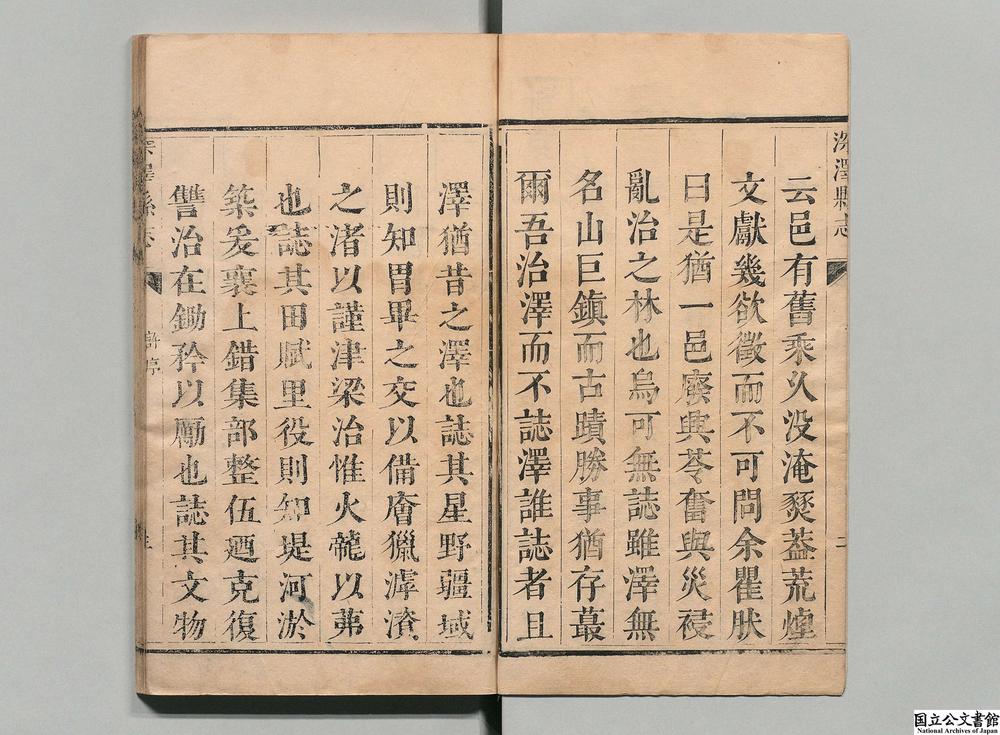 深澤縣志
二
云邑有舊乘久没淹燹蓋荒煌
文獻幾欲徵而不可問余瞿肰
曰是猶一邑廢興苓奮與災祲
亂治之林也烏可無誌雖澤無
名山巨鎮而古蹟勝事猶存蕞
爾吾治澤而不誌澤誰誌者且
澤猶昔之澤也誌其星野疆域
則知胃畢之交以備
之渚以謹津梁治惟火龍以茀
也誌其田賦里役則知堤河淤
築爰襄上錯集部整伍迺克復
讐治在鋤矜以勵也誌其文物
深澤縣志
許序
国立公文書館
National Archives of Japan